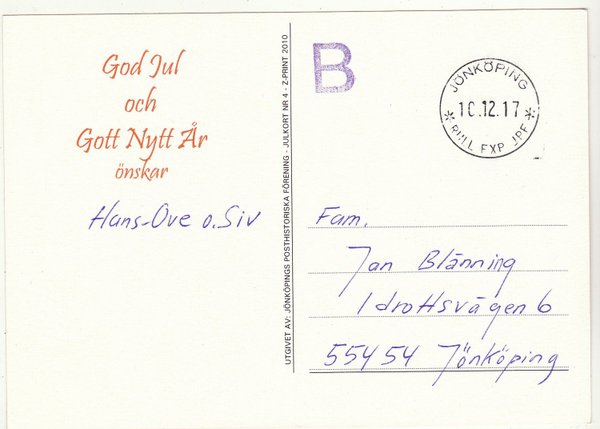 God Jul
och
Gott Nytt År
önskar
Hans-Ove o. Siv
UTGIVET AV: JÖNKÖPINGS POSTHISTORISKA FÖRENING - JULKORT NR 4 - Z-PRINT 2010
B
JÖNKÖPING
10.12.17
* RULL EXP JPF *
Fam.
Jan Blänning
Idrottsvägen 6
554 54 Jönköping